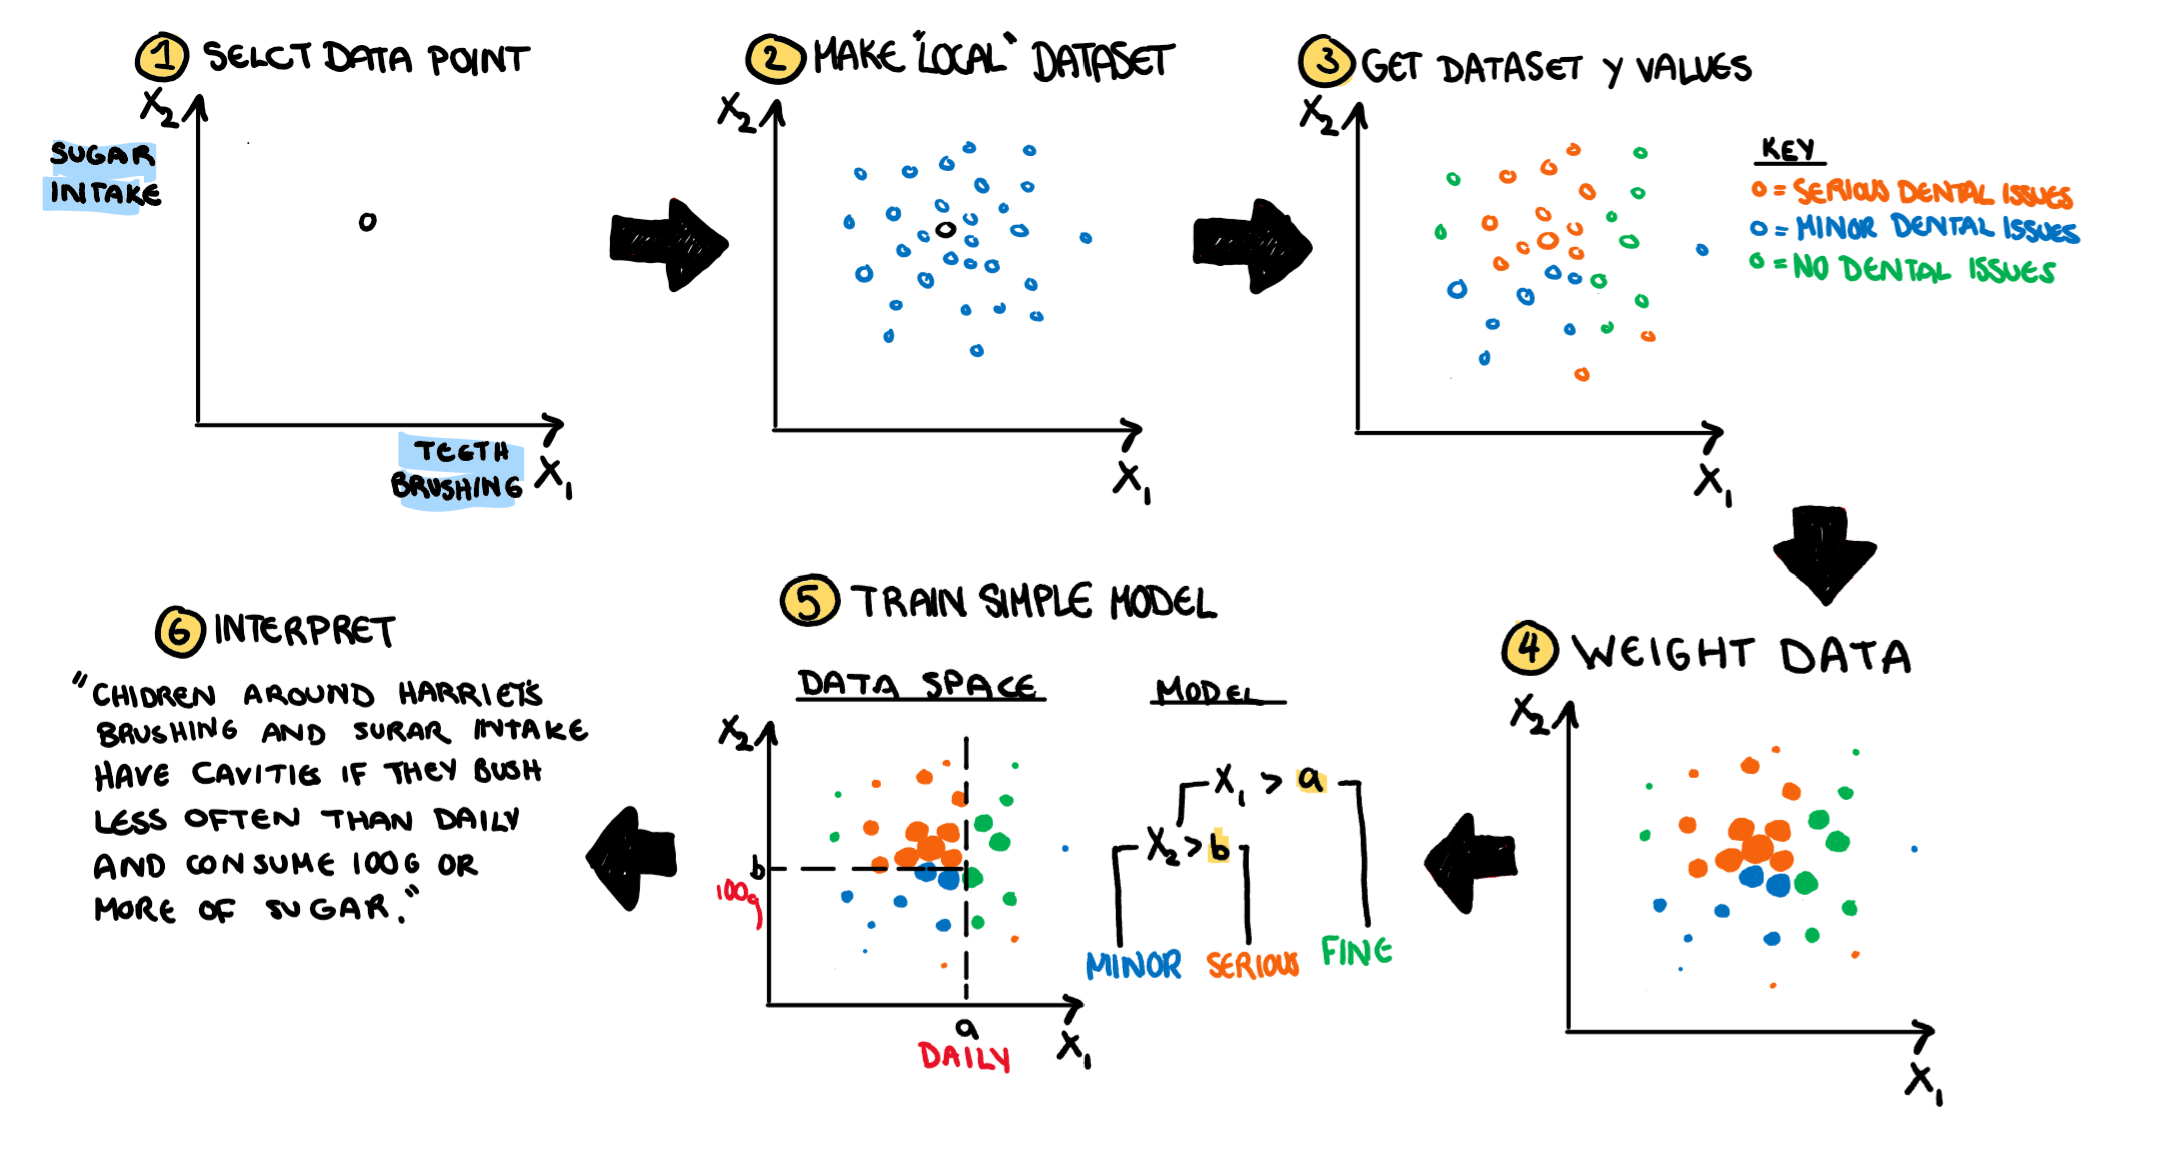 1 SELCT DATA POINT
X2
SUGAR
INTAKE
TEETH
BRUSHING
X1
2 MAKE "LOCAL" DATASET
X2
X1
3 GET DATASET Y VALUES
X2
X1
KEY
O = SERIOUS DENTAL ISSUES
O = MINOR DENTAL ISSUES
O = NO DENTAL ISSUES
4 WEIGHT DATA
X2
X1
5 TRAIN SIMPLE MODEL
DATA SPACE
X2
b
100g
a
DAILY
X1
MODEL
X1 > a
X2 > b
MINOR SERIOUS FINE
6 INTERPRET
"CHIDREN AROUND HARRIET'S
BRUSHING AND SURAR INTAKE
HAVE CAVITIES IF THEY BUSH
LESS OFTEN THAN DAILY
AND CONSUME 100G OR
MORE OF SUGAR."